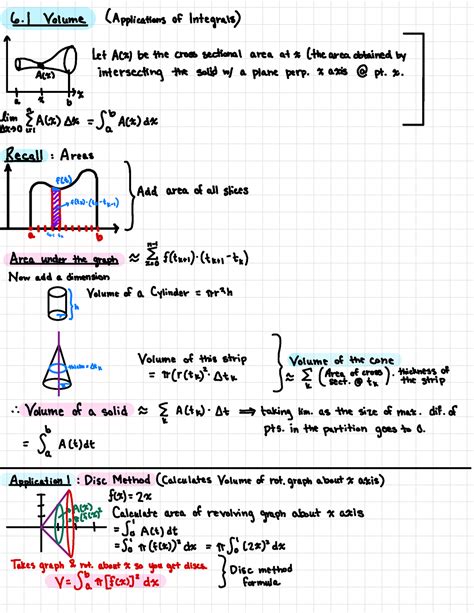 6.1 Volume (Applications of Integrals)
Let A(x) be the cross sectional area at x (the area obtained by
intersecting the solid w/ a plane perp. x axis @ pt. x.
A(x)
a x b x
lim Δx→0 Σ i=1 n A(x) Δx = ∫_a^b A(x) dx
Recall : Areas
f(t)
Add area of all slices
a b
Area under the graph ≈ Σ f(t_{k+1})·(t_{k+1} - t_k)
Now add a dimension
h
Volume of a Cylinder = πr²h
Volume of this strip
= π(r(t_k)²·Δt_k
Volume of the cone
≈ Σ_k (Area of cross sect. @ t_k) · thickness of the strip
∴ Volume of a solid ≈ Σ_k A(t_k)·Δt ⟹ taking lim. as the size of max. dif. of
pts. in the partition goes to 0.
= ∫_a^b A(t)dt
Application 1 : Disc Method (Calculates Volume of rot. graph about x axis)
f(x) = 2x
A(x)
Calculate area of revolving graph about x axis
= ∫_0^1 A(t) dt
= ∫_0^1 π(f(x))² dx = π∫_0^1 (2x)² dx
Takes graph & rot. about x so you get discs.
V = ∫_a^b π[f(x)]² dx
Disc method
formula